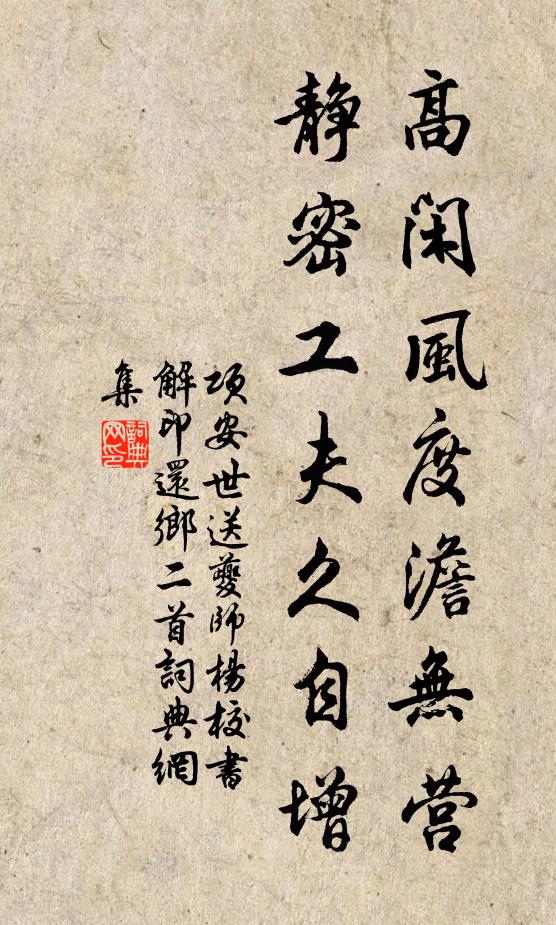 高閑風度澹無営
静密工夫久自增
項安世送夔師楊校書
解印還鄉二首詞典網
集
詞典
网印